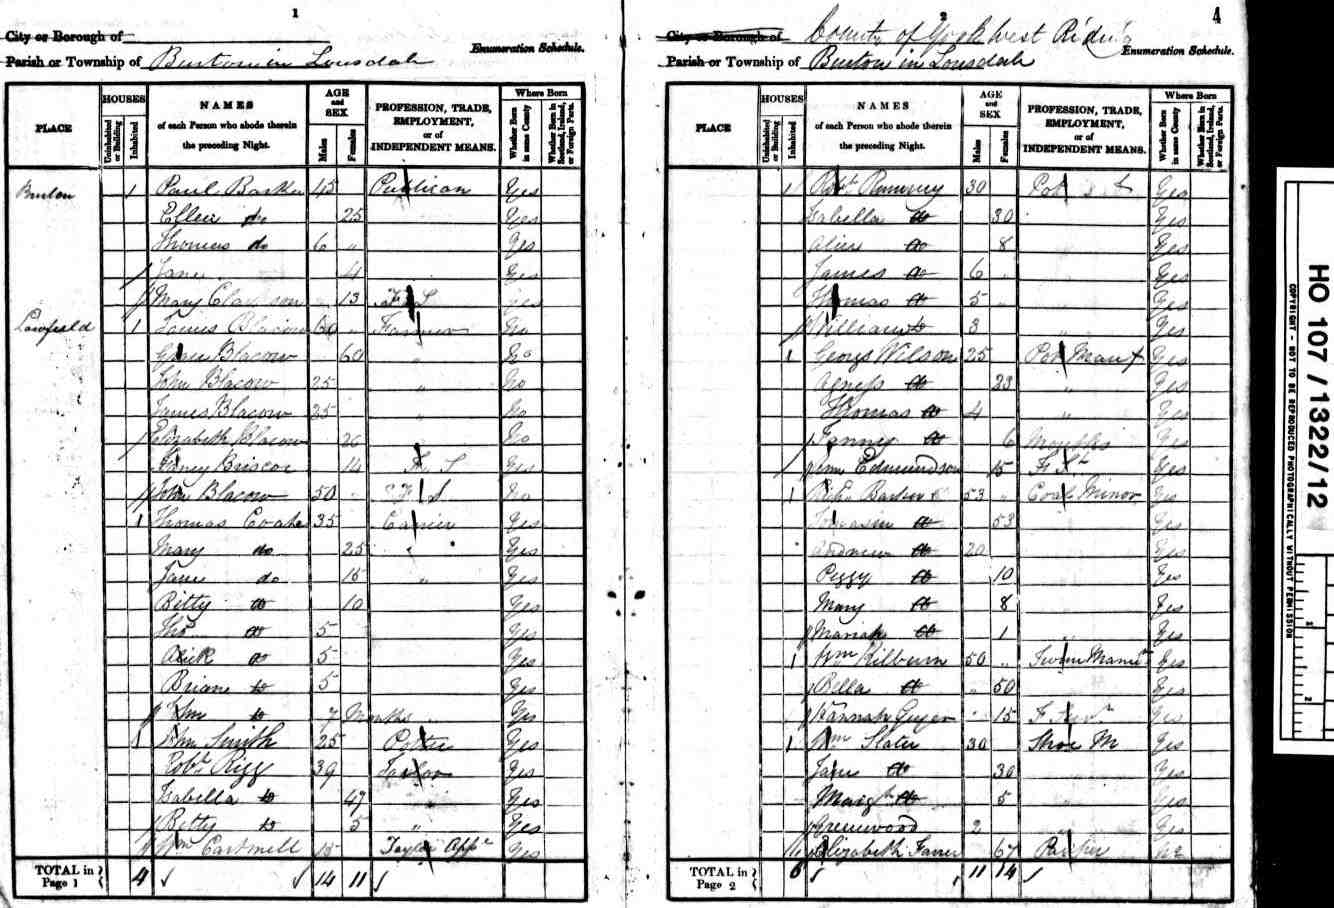 1
City or Borough of
Enumeration Schedule.
Parish or Township of Burton in Lonsdale
PLACE
HOUSES
Uninhabited or Building
Inhabited
NAMES
of each Person who abode therein
the preceding Night.
AGE and SEX
Males
Females
PROFESSION, TRADE,
EMPLOYMENT,
or of
INDEPENDENT MEANS.
Where Born
Whether Born in same County
Whether Born in Scotland, Ireland, or Foreign Parts.
Burton 1 Paul Barker 45 Publican Yes
Ellen do 25 Yes
Thomas do 6 " Yes
Jane 4 Yes
Mary Clapson 13 F S Yes
Lowfield 1 James Blacow 60 " Farmer No
Blacow 60 " No
John Blacow 25 " No
James Blacow 25 " No
Elizabeth Blacow 20 No
Briscoe 14 F S Yes
John Blacow 50 F S No
1 Thomas Coates 35 Carrier Yes
Mary do 25 " Yes
Jane do 15 " Yes
Betty do 10 Yes
Thos do 5 Yes
Dick do 5 Yes
Brian do 5 Yes
Wm do 7 Months Yes
1 Wm Smith 25 Potter Yes
Robt Rigg 39 Tailor Yes
Isabella do 47 " Yes
Betty do 5 " Yes
Wm Cartmell 15 Taylor App Yes
TOTAL in Page 1 4 14 11
2
4
City or Borough of County of York West Riding
Enumeration Schedule.
Parish or Township of Burton in Lonsdale
PLACE
HOUSES
Uninhabited or Building
Inhabited
NAMES
of each Person who abode therein
the preceding Night.
AGE and SEX
Males
Females
PROFESSION, TRADE,
EMPLOYMENT,
or of
INDEPENDENT MEANS.
Where Born
Whether Born in same County
Whether Born in Scotland, Ireland, or Foreign Parts.
1 Robt Rumney 30 Yes
Isabella do 30 Yes
Alice do 8 Yes
James do 6 " Yes
Thomas do 5 " Yes
William do 3 " Yes
1 George Wilson 25 Pot Manf Yes
Agness do 23 " Yes
Thomas do 4 " Yes
Fanney do 6 Months Yes
Ann Edmundson 15 F St Yes
1 Barker 53 " Coal Minor Yes
Tomasin do 53 Yes
Andrew do 20 Yes
Peggy do 10 Yes
Mary do 8 Yes
Mariah do 1 " Yes
1 Wm Kilburn 50 " Yes
Bella do " 50 Yes
Hannah Guyer 15 F Yes
1 Wm Slater 30 Shoe M Yes
Jane do 30 Yes
Margt do 5 Yes
Greenwood 2 " Yes
Elizabeth 67
TOTAL in Page 2 6 11 14
HO 107/1322/12
COPYRIGHT - NOT TO BE REPRODUCED PHOTOGRAPHICALLY WITHOUT PERMISSION
1
2